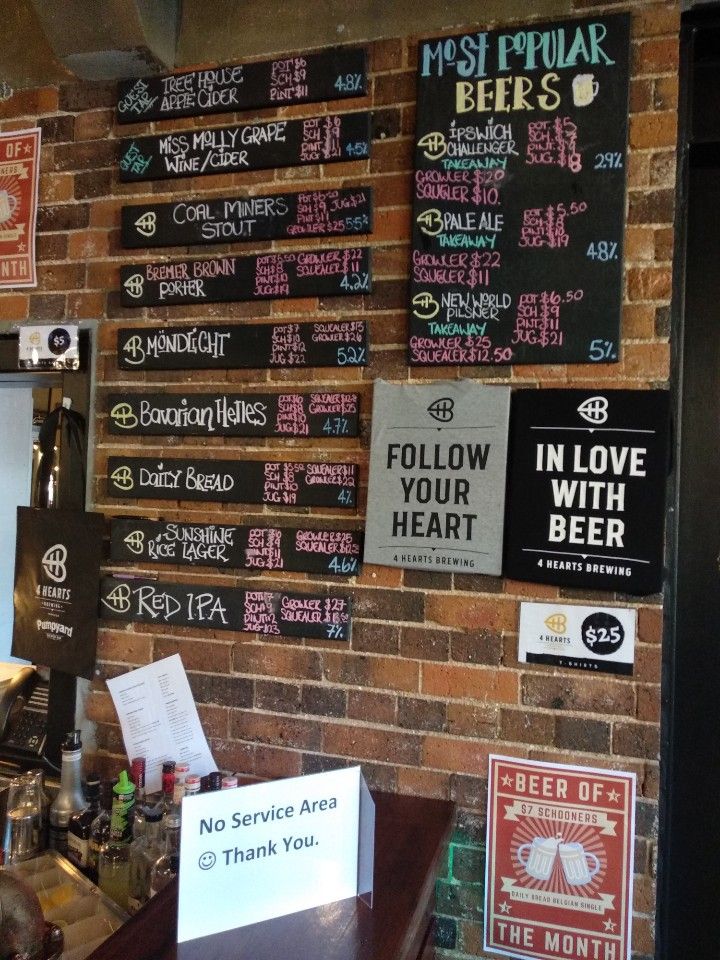 GUEST TAP
TREE HOUSE
APPLE CIDER
POT $6
SCH $9
PINT $11
4.8%
GUEST TAP
MISS MOLLY GRAPE
WINE/CIDER
POT $6
PINT $11
JUG $21
4.5%
4B COAL MINERS
STOUT
SCH $9 JUG $21
PINT $11
GROWLER $25
5.5%
4B BREMER BROWN
PORTER
GROWLER $22
SCH $8 SQUEALER $11
PINT $10
JUG $19
4.2%
4B MÖNDLICHT
POT $7 SQUEALER $13
SCH $10 GROWLER $26
PINT $12
JUG $22
5.2%
4B BAVARIAN HELLES
POT $6
SCH $8 GROWLER $25
PINT $11
JUG $21
4.7%
4B DAILY BREAD
POT $5.50 SQUEALER $11
SCH $8 GROWLER $22
PINT $10
JUG $19
4%
4B SUNSHINE
RICE LAGER
GROWLER $25
PINT $11
JUG $21
4.6%
4B RED IPA
POT $7 GROWLER $27
SCH $9
JUG $23
7%
MOST POPULAR
BEERS
4B IPSWICH
CHALLENGER
TAKEAWAY
POT $5
JUG $18
2.9%
GROWLER $20
SQUGLER $10.
4B PALE ALE
TAKEAWAY
JUG $19
4.8%
GROWLER $22
SQUEGLER $11
4B NEW WORLD
PILSNER
TAKEAWAY
POT $6.50
SCH $9
PINT $11
JUG $21
GROWLER $25
SQUEALER $12.50
5%
OF
THE MONTH
$5
4B
FOLLOW
YOUR
HEART
4 HEARTS BREWING
4B
IN LOVE
WITH
BEER
4 HEARTS BREWING
4B
4 HEARTS
BREWING
Pumpyard
4B
4 HEARTS
$25
T-SHIRTS
No Service Area
☺ Thank You.
BEER OF
$7 SCHOONERS
DAILY BREAD BELGIAN SINGLE
THE MONTH